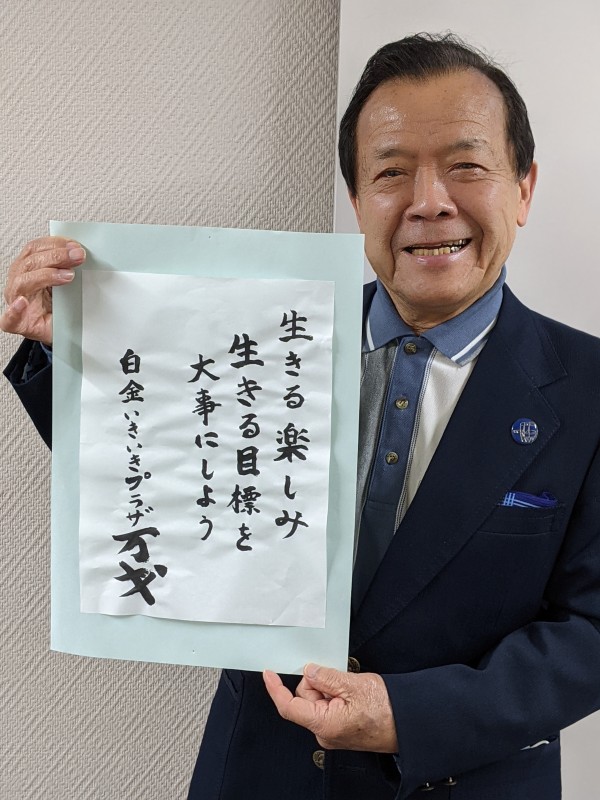 生きる楽しみ
生きる目標を
大事にしよう
白金いきいきプラザ万歩